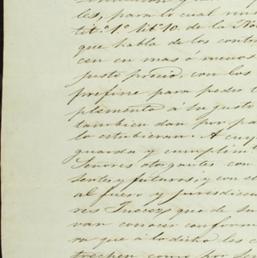 les, para lo cual
tit.º 1º lib. 10. de la No
que habla de los contra
cen en mas ó menos
justo precio, con los
prefine para pedir
plemento á su justo
tambien dan por pa
lo estubieran. A cuy
guarda y cumplim
Señores otorgantes con
sentes y futuros, y con
al fuero y jurisdiccion
res Jueces que de su
van conocer conform
ra que á lo dicho les c
trechen como por sen